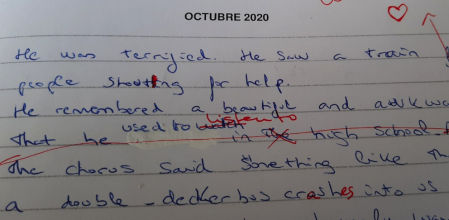 OCTUBRE 2020
He was terrified. He saw a train
people shouting for help.
He remembered a beautiful and awkwa
listen to
that he used to in high school.
The chorus said something like Th
a double-decker bus crashes into us